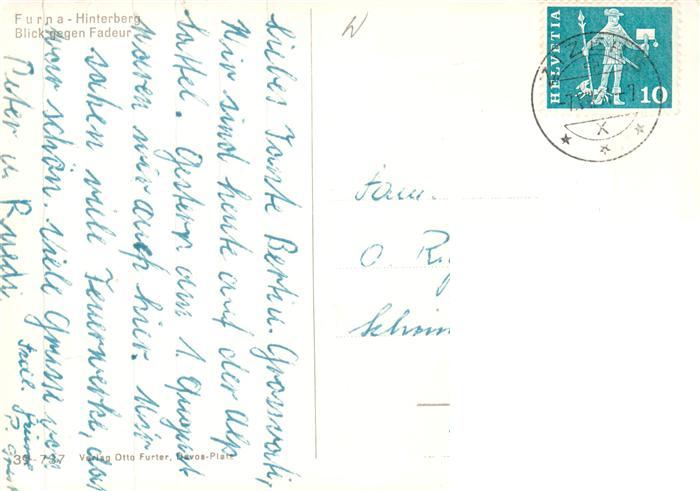 Furna - Hinterberg
Blick gegen Fadeur
Liebes Tante Berti u. Grossvati,
Wir sind heute auf der Alp
Gestern am 1. August
waren wir auch hier. Wir
sahen viele Feuerwerke, das
war schön. Viele Grüsse von
Peter u. Ruedi
HELVETIA
10
Fam.
O.
39-737 Verlag Otto Furter, Davos-Platz